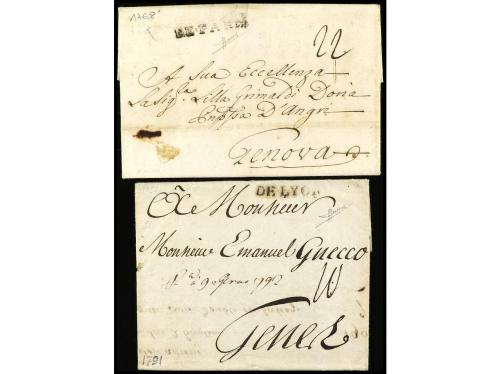 1768
DE PARIS
22
A Sua Eccellenza
La Sig.ra Lilla Grimaldi Doria
D'Angri
Genova
DE LYON
A Monsieur
Monsieur Emanuel Guecco
10
Genes
1791